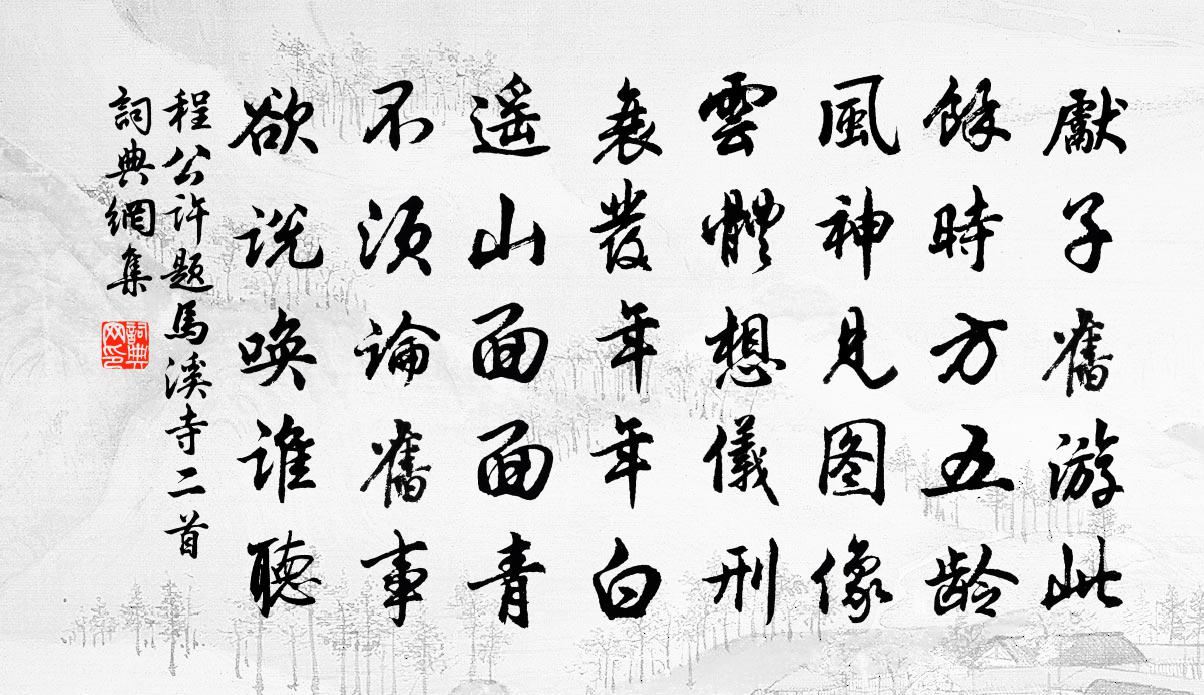 獻子舊游此
餘時方五龄
風神見图像
雲體想儀刑
衰發年年白
遥山面面青
不须論舊事
欲说唤谁聽
程公许题馬溪寺二首
詞典網集
詞典网印